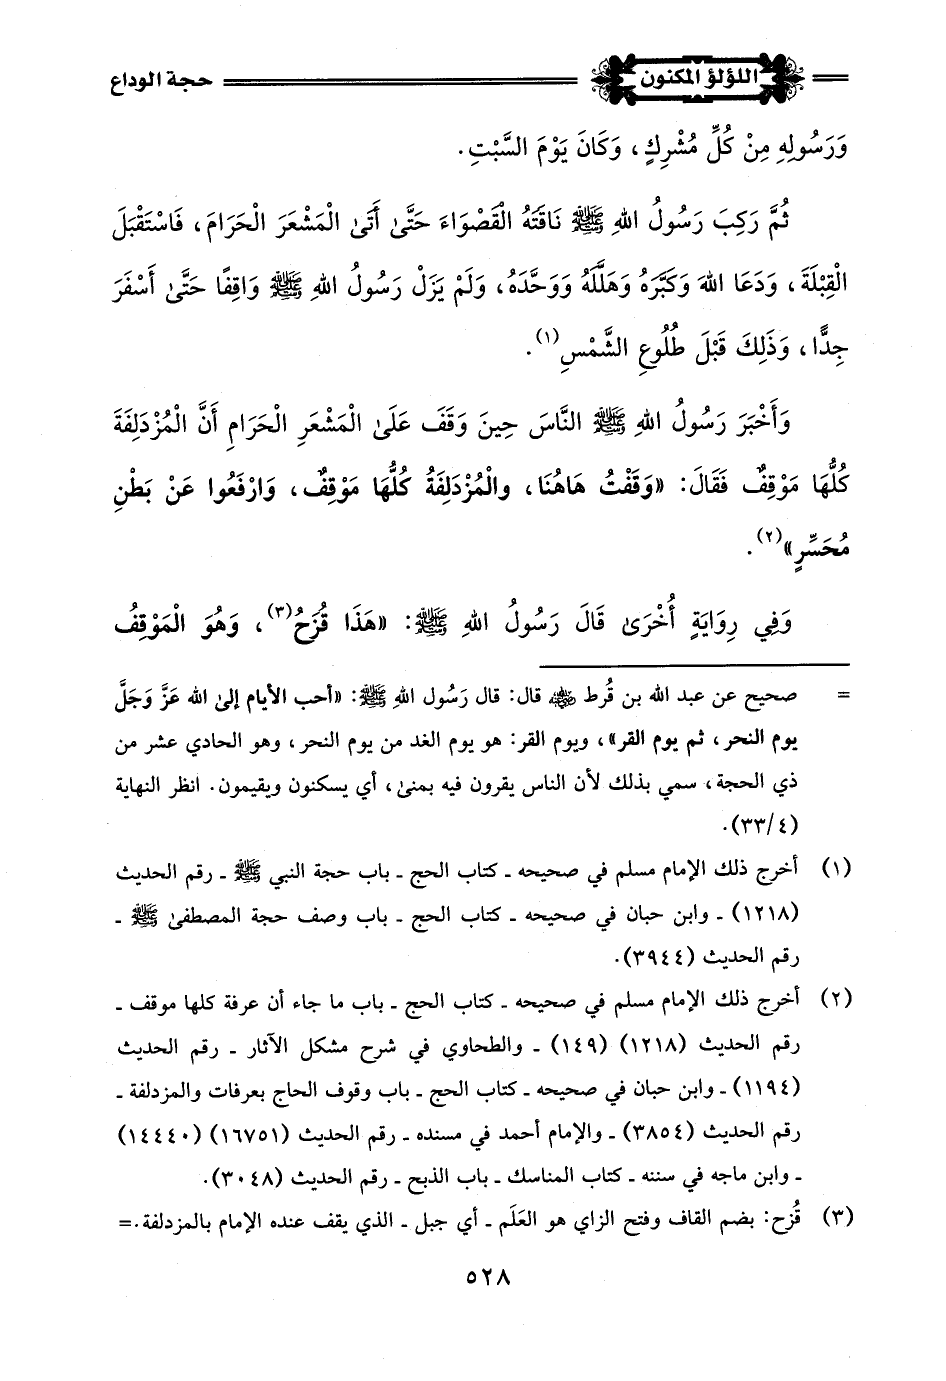 اللؤلؤ المكنون
حجة الوداع
وَرَسُولِهِ مِنْ كُلِّ مُشْرِكٍ، وَكَانَ يَوْمَ السَّبْتِ.
ثُمَّ رَكِبَ رَسُولُ اللهِ ﷺ نَاقَتَهُ الْقَصْوَاءَ حَتَّىٰ أَتَىٰ الْمَشْعَرَ الْحَرَامَ، فَاسْتَقْبَلَ
الْقِبْلَةَ، وَدَعَا اللهَ وَكَبَّرَهُ وَهَلَّلَهُ وَوَحَّدَهُ، وَلَمْ يَزَلْ رَسُولُ اللهِ ﷺ وَاقِفًا حَتَّىٰ أَسْفَرَ
جِدًّا، وَذَلِكَ قَبْلَ طُلُوعِ الشَّمْسِ(١).
وَأَخْبَرَ رَسُولُ اللهِ ﷺ النَّاسَ حِينَ وَقَفَ عَلَىٰ الْمَشْعَرِ الْحَرَامِ أَنَّ الْمُزْدَلِفَةَ
كُلُّهَا مَوْقِفٌ فَقَالَ: «وَقَفْتُ هَاهُنَا، والْمُزْدَلِفَةُ كُلُّهَا مَوْقِفٌ، وَارْفَعُوا عَنْ بَطْنِ
مُحَسِّرٍ»(٢).
وَفِي رِوَايَةٍ أُخْرَىٰ قَالَ رَسُولُ اللهِ ﷺ: «هَذَا قُزَحُ(٣)، وَهُوَ الْمَوْقِفُ
= صحيح عن عبد الله بن قُرط رضي الله عنه قال: قال رَسُول اللهِ ﷺ: «أحب الأيام إلىٰ الله عَزَّ وَجَلَّ
يوم النحر، ثم يوم القر»، ويوم القر: هو يوم الغد من يوم النحر، وهو الحادي عشر من
ذي الحجة، سمي بذلك لأن الناس يقرون فيه بمنىٰ، أي يسكنون ويقيمون. انظر النهاية
(٣٣/٤).
(١) أخرج ذلك الإمام مسلم في صحيحه ـ كتاب الحج ـ باب حجة النبي ﷺ ـ رقم الحديث
(١٢١٨) ـ وابن حبان في صحيحه ـ كتاب الحج ـ باب وصف حجة المصطفىٰ ﷺ ـ
رقم الحديث (٣٩٤٤).
(٢) أخرج ذلك الإمام مسلم في صحيحه ـ كتاب الحج ـ باب ما جاء أن عرفة كلها موقف ـ
رقم الحديث (١٢١٨) (١٤٩) ـ والطحاوي في شرح مشكل الآثار ـ رقم الحديث
(١١٩٤) ـ وابن حبان في صحيحه ـ كتاب الحج ـ باب وقوف الحاج بعرفات والمزدلفة ـ
رقم الحديث (٣٨٥٤) ـ والإمام أحمد في مسنده ـ رقم الحديث (١٦٧٥١) (١٤٤٤٠)
ـ وابن ماجه في سننه ـ كتاب المناسك ـ باب الذبح ـ رقم الحديث (٣٠٤٨).
(٣) قُزح: بضم القاف وفتح الزاي هو العَلَم ـ أي جبل ـ الذي يقف عنده الإمام بالمزدلفة.=
٥٢٨